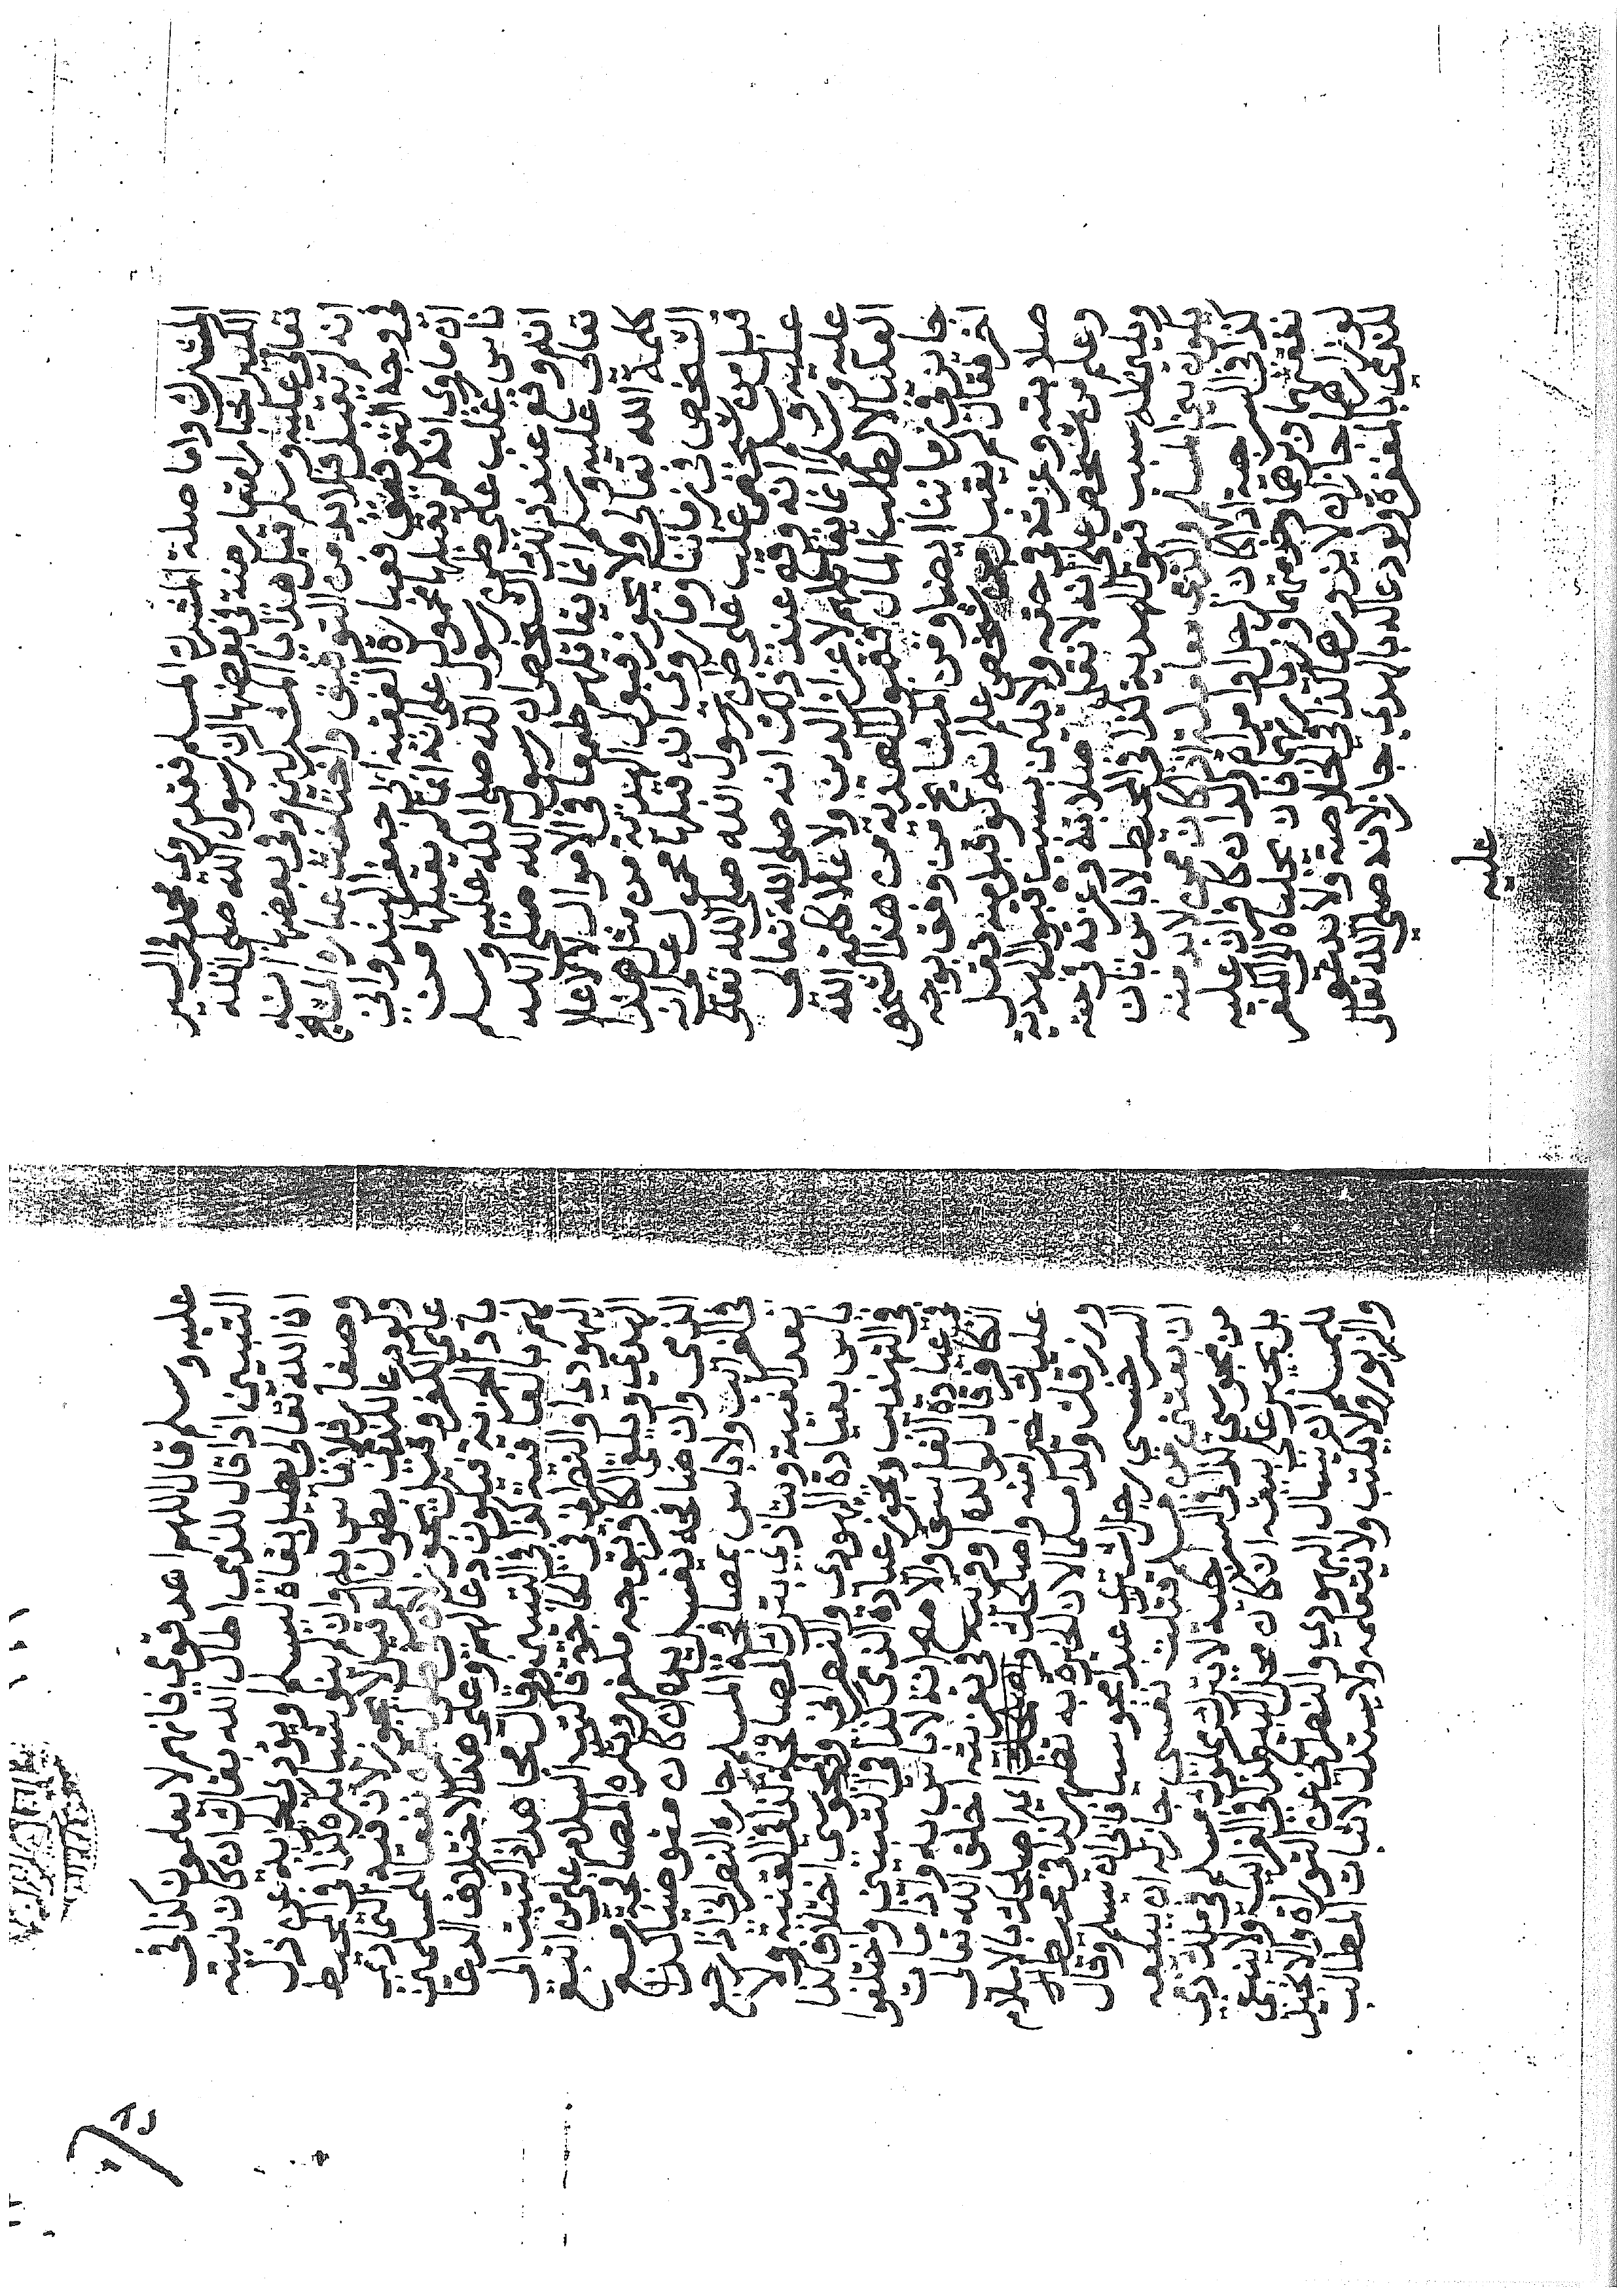 المشرك واما صلة المشرك المسلم فقد روى محمد في السير
الكبير اخبارا متعارضة في بعضها ان رسول الله صلى الله
تعالى عليه وسلم قبل هدايا المشركين وفي بعضها انه
انه لم يقبل فلا بد من التوفيق واختلفت عبارة المشايخ
في وجه التوفيق فعبارة الفقيه ابي جعفر الهندواني
ان ما روى انه لم يقبلها محمول على انه انما لم يقبلها من
ناس غلب على ظن رسول الله صلى الله عليه وسلم
انه وقع عند ذلك الشخص ان رسول الله صلى الله
تعالى عليه وسلم انما يقاتلهم طمعا في الاموال لا لاعلا
كلمة الله تعالى ولا يجوز قبول الهدية من مثل هذا
الشخص في زماننا وما روى انه قبلها محمول على انه
قبل من شخص غلب على ظن رسول الله صلى الله تعالى
عليه وسلم انه وقع عند ذلك انه صلى الله تعالى
عليه وسلم انما يقاتلهم لاعزاز الدين ولاعلاء كلمة الله
العليا لا لطلب المال فقبول الهدية من هذا الشخص
جايز في زماننا ايضا ومن المشايخ من وفق بوجه
اخر فقال لم يقبل من شخص علم انه لو قبل منه تقل
صلابته وعزته في حقه ويلين بسبب قبول الهدية
وقبل من شخص علم انه لا تقل صلابته وعزته في حقه
ولا يلين له بسبب قبول الهدية كذا في المحيط لا باس بان
يكون بين المسلم والذمي معاملة اذا كان مما لا بد منه
كذا في السراجية اذا كان لرجل او امراة والدان كافران عليه
نفقتهما وبرهما وخدمتهما وزيارتهما فان يجلباه الى الكفر
لو زارهما جاز ان لا يزورهما كذا في الخلاصة ولا يدعو
للذمي بالمغفرة ولو دعا له بالهدى جاز لانه صلى الله تعالى
عليه
عليه وسلم قال اللهم اهد قومي فانهم لا يعلمون كذا في
التبيين اذا قال للذمي اطال الله بقاك ان كان نيته
ان الله تعالى يطيل بقاه ليسلم او يؤدي الجزية عن ذل
وصغار فلا باس به وان لم ينو شيا يكره كذا في المحيط
ولو دعا للذمي بطول العمر قيل لا يجوز لان فيه التمادي
على الكفر وقيل يجوز لان في طول عمره نفعا للمسلمين
باداء الجزية فيكون دعا لهم وعلى هذا الاختلاف الدعا
لهم بالعافية كذا في التبيين وقال مجاهد اذا كتبت الى
اليهودي او النصراني في الحاجة فاكتب السلام على من اتبع
الهدى ويلقى الكافر بوجه مكفهر وتكره المصافحة مع
الذمي وان صافحه يغسل يده ان كان متوضيا كذا
في الغرايب ولا باس بمصافحة المسلم جاره النصراني اذا رجع
بعد الغيبة ويتاذى بترك المصافحة كذا في القنية ولا
باس بعيادة اليهودي والنصراني وفي المجوسي اختلاف كذا
في التهذيب ويجوز عيادة الذمي كذا في التبيين واختلفوا
في عيادة الفاسق والاصح انه لا باس به واذا مات
الكافر قال لوالده او قريبه في تعزيته اخلف الله تعالى
عليك خيرا منه واصلحك اي اصلحك بالاسلام
ورزقك ولدا مسلما لان الخيرية به تظهر كذا في محيط
السرخسي رجل اشترى عبدا مجوسيا فابى ان يسلم وقال
ان بعتني من مسلم قتلت نفسي جاز له ان يبيعه
من مجوسي كذا في السراجية لا يترك مملوك مسلم في ملك ذمي
بل يجبر على بيعه ان كان محلا للبيع كذا في الغرايب ولا ينبغي
للمسلم ان يسال اليهودي والنصراني عن التوراة والانجيل
والزبور ولا يكتب ولا يتعلمه ولا يستدل لاثبات المطالب